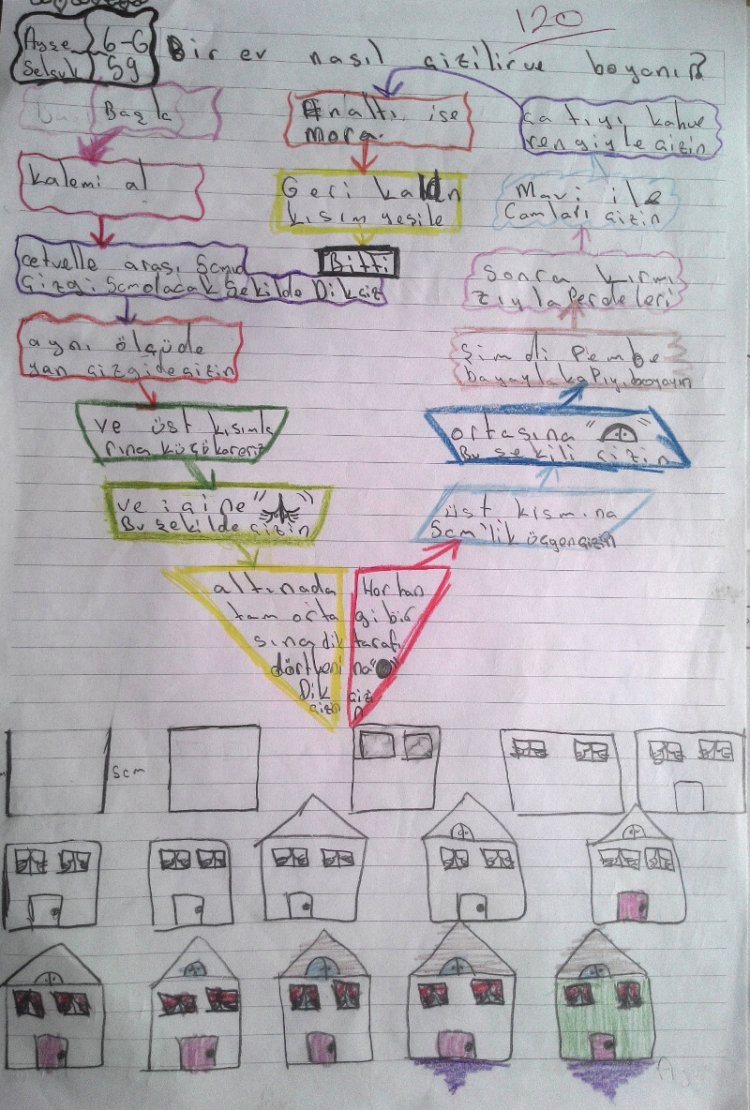 120
Ayşe 6-G
Selçuk 59
Bir ev nasıl çizilir ve boyanır?
Başla
kalemi al
cetvelle arası 5cm
Çizgi 5cm olacak Şekilde Dik çiz
aynı ölçüde
yan çizgide çizin
ve üst kısımla
rına küçük kareriz
ve içine " "
Bu şekilde çizin
altınada
tam orta
sına dik
dörtgeni
Dik
çizin
Her han
gi bir
tarafı
na " "
çiz
n
üst kısmına
5cm'lik üçgen çizin
ortasına " "
Bu şekili çizin
Şimdi Pembe
boyayla kapıyı boyayın
Sonra kırmı
zıyla Perdeleri
Mavi ile
Camları çizin
çatıyı kahve
rengiyle çizin
En altı ise
mora.
Geri kalan
kısım yeşile
Bitti
5cm